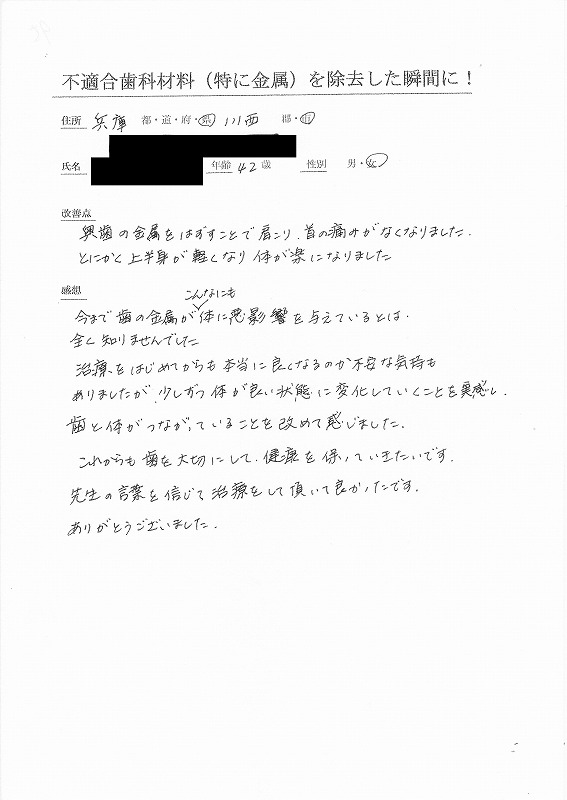 不適合歯科材料（特に金属）を除去した瞬間に！
住所 兵庫 都・道・府・県 川西 郡・市
氏名 年齢 42 歳 性別 男・女
改善点
奥歯の金属をはずすことで肩こり、首の痛みがなくなりました。
とにかく上半身が軽くなり体が楽になりました
感想
こんなにも
今まで歯の金属が体に悪影響を与えているとは、
全く知りませんでした
治療をはじめてからも本当に良くなるのか不安な気持も
ありましたが、少しずつ体が良い状態に変化していくことを実感し、
歯と体がつながっていることを改めて感じました。
これからも歯を大切にして、健康を保っていきたいです。
先生の言葉を信じて治療をして頂いて良かったです。
ありがとうございました。